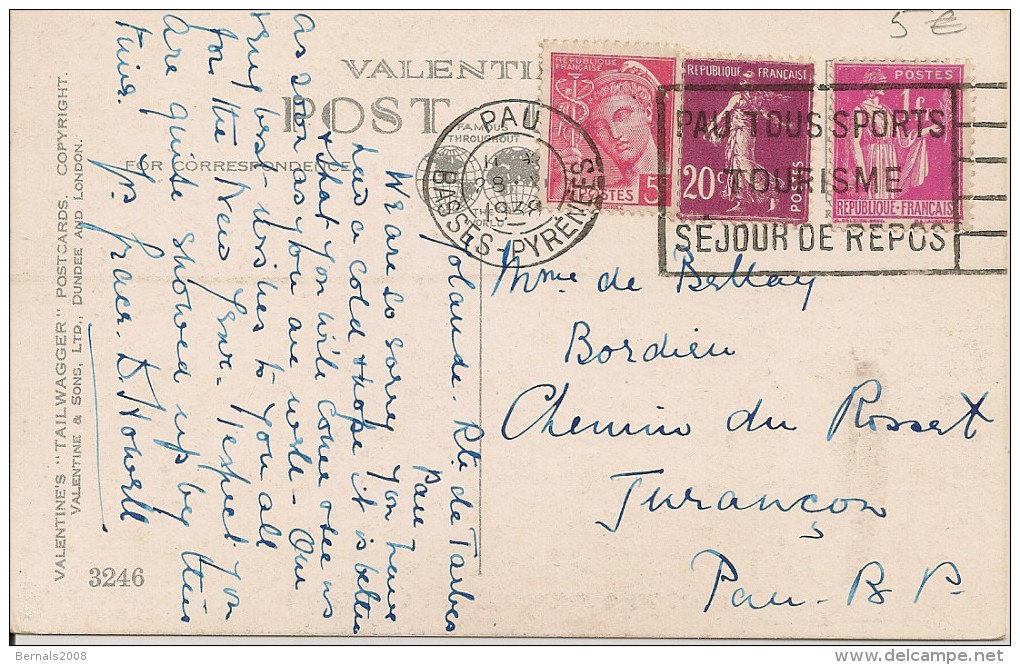 5 €
VALENTIN
POST
FAMOUS
THROUGHOUT
WORLD
FOR CORRESPONDENCE
VALENTINE'S "TAILWAGGER" POSTCARDS. COPYRIGHT.
VALENTINE & SONS, LTD., DUNDEE AND LONDON.
3246
RÉPUBLIQUE
FRANÇAISE
POSTES 5
RÉPUBLIQUE FRANÇAISE
20c
POSTES
POSTES
1F
RÉPUBLIQUE-FRANÇAISE
PAU
BASSES-PYRÉNÉES
PAU TOUS SPORTS
TOURISME
SÉJOUR DE REPOS
Yolande. Rte de Tarbes
Pau
We are so sorry you have
had a cold & hope it is better
& that you will come & see us
as soon as you are well - Our
very best wishes to you all
for the New Year. I expect you
are quite snowed up by this
time. Yrs D. Howell
Mme de
Bordieu
Chemin du Rosset
Jurançon
Pau. B. P.
Bernals2008
www.delcampe.net